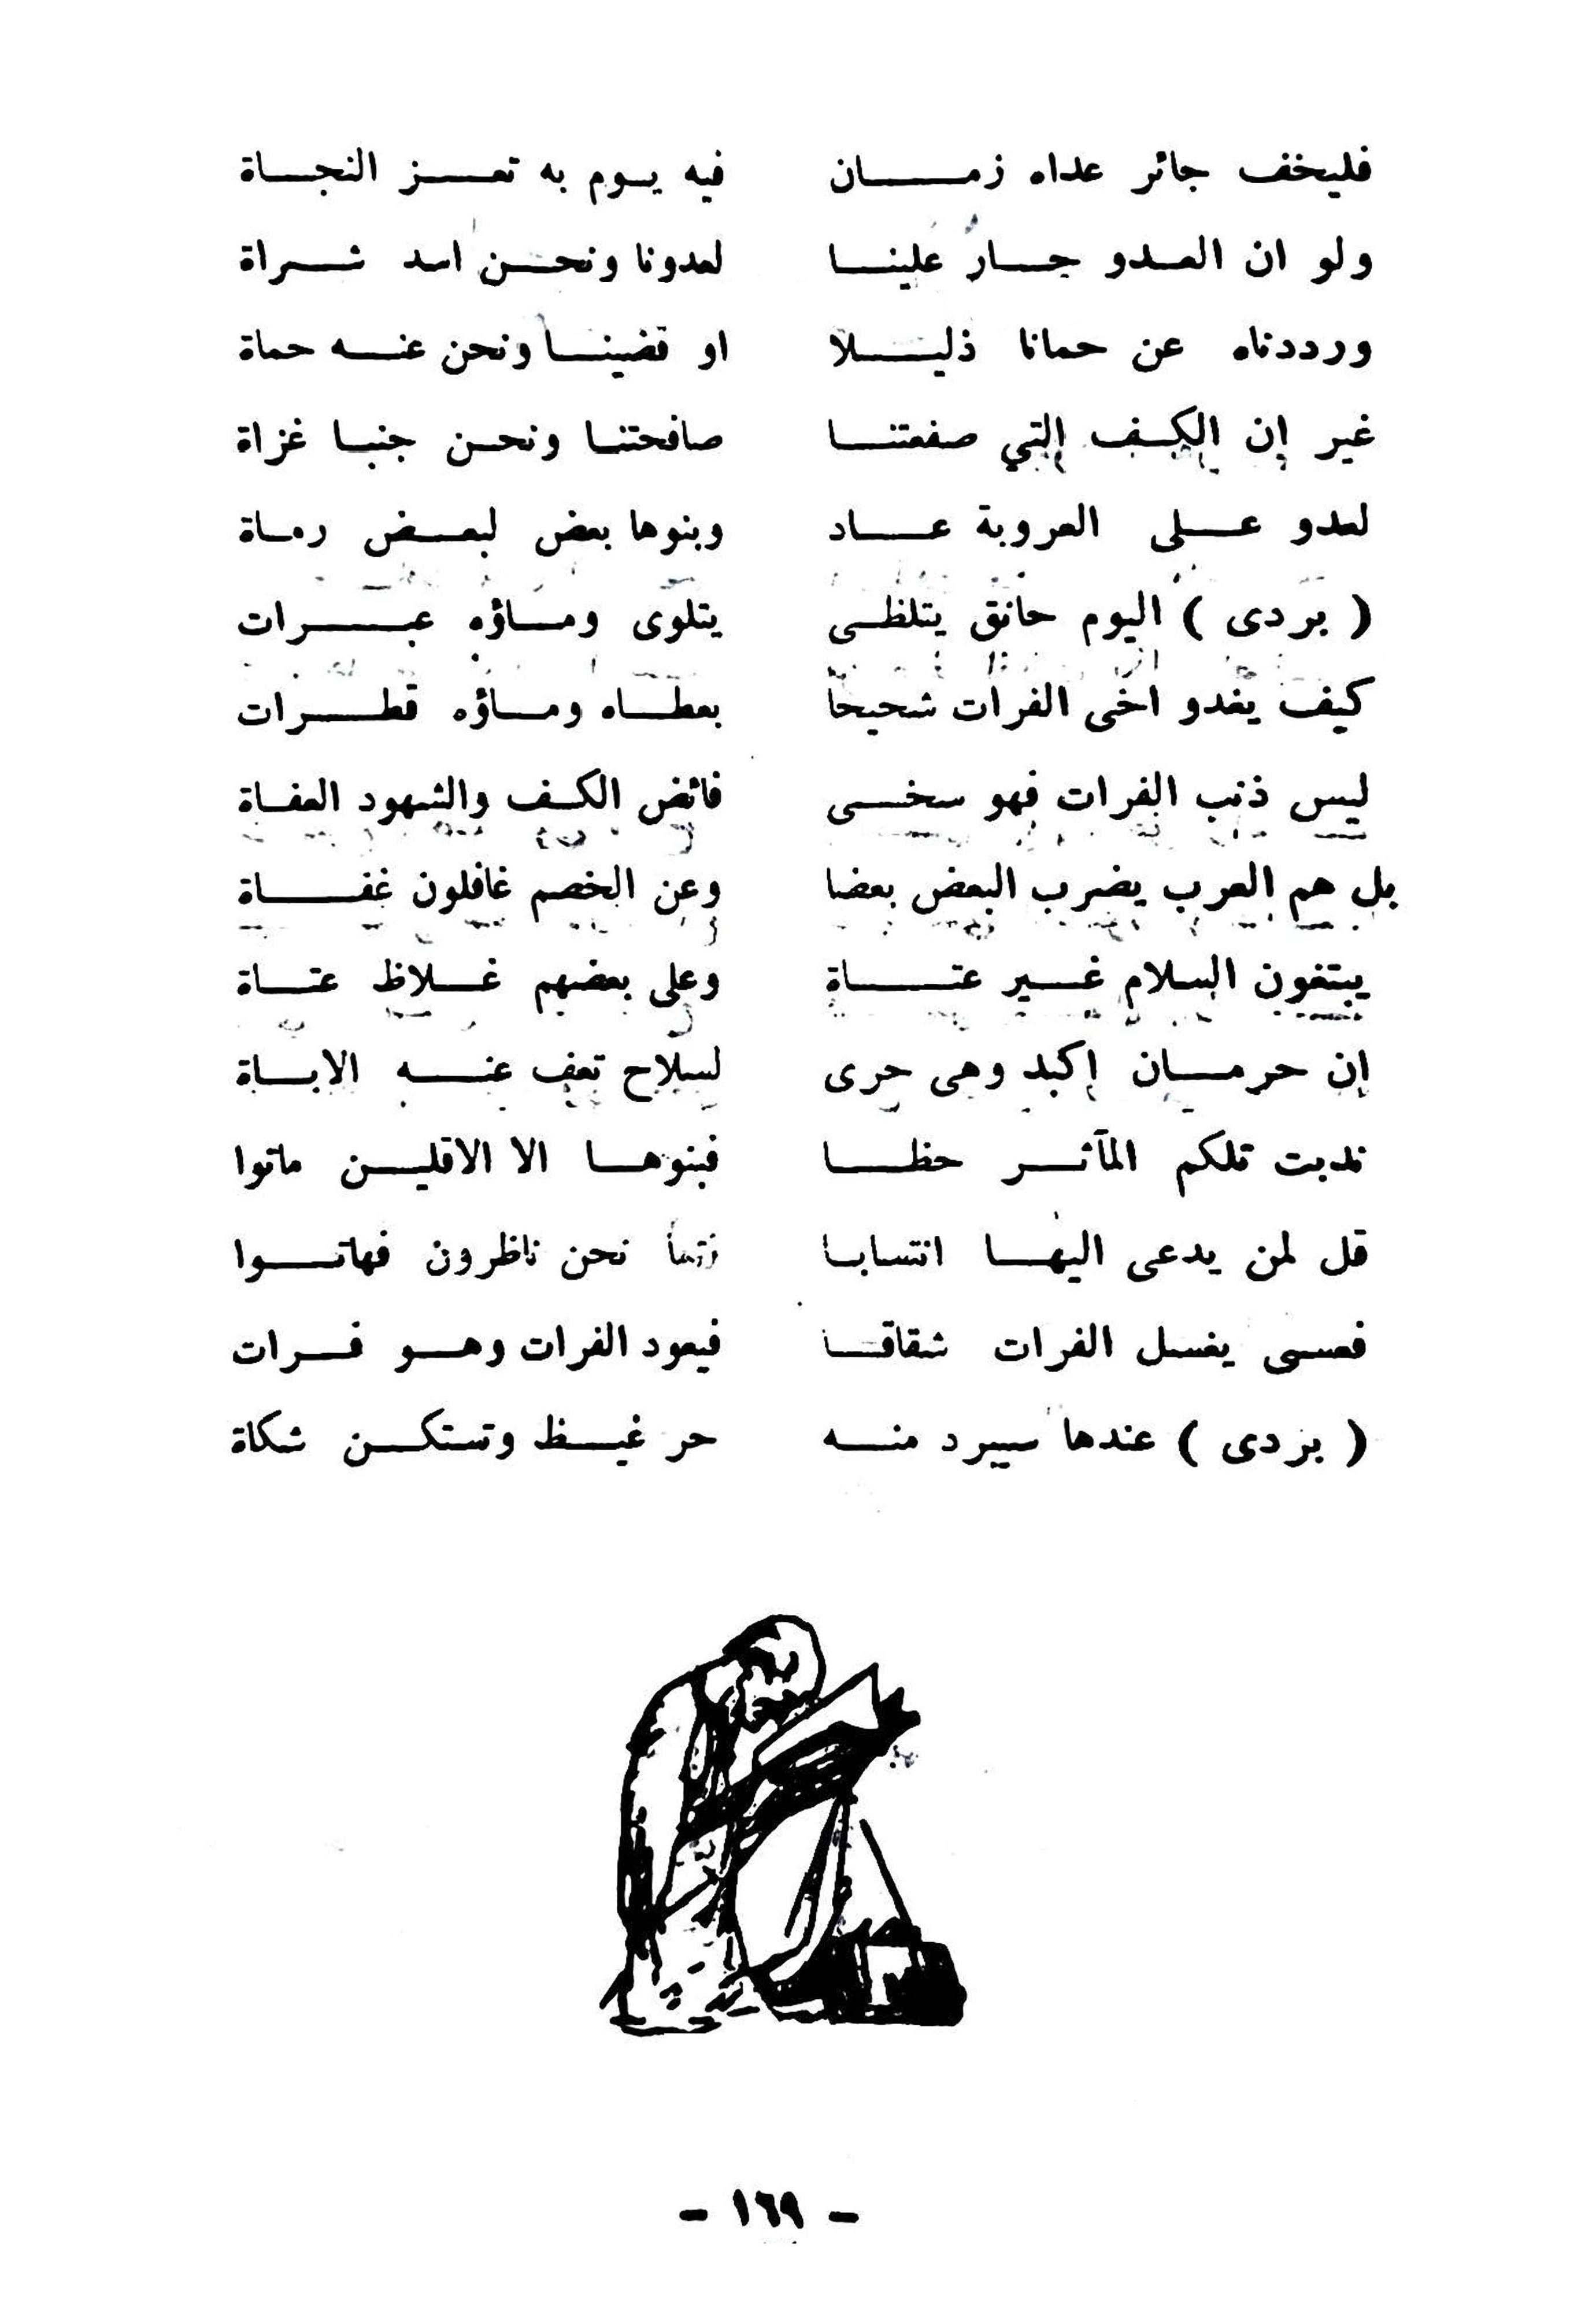 فليخف جائر عداه زمان فيه يوم به تعز النجاة
ولو ان العدو جار علينا لعدونا ونحن اسد شراة
ورددناه عن حمانا ذليلا او قضينا ونحن عنه حماة
غير إن الكف التي صفعتنا صافحتنا ونحن جنبا غزاة
لعدو على العروبة عاد وبنوها بعض لبعض رماة
( بردى ) اليوم حانق يتلظى يتلوى وماؤه عبرات
كيف يغدو اخى الفرات شحيحا بعطاه وماؤه قطرات
ليس ذنب الفرات فهو سخى فائض الكف والشهود العفاة
بل هم العرب يضرب البعض بعضا وعن الخصم غافلون غفاة
يبتغون السلام غير عتاة وعلى بعضهم غلاظ عتاة
إن حرمان إكبد وهى حرى لسلاح تعف عنه الاباة
ندبت تلكم المآثر حظا فبنوها الا الاقلين ماتوا
قل لمن يدعى اليها انتسابا نحن ناظرون فهاتوا
فعسى يغسل الفرات شقاقا فيعود الفرات وهو فرات
( بردى ) عندها سيبرد منه حر غيظ وتستكن شكاة
- ١٦٩ -